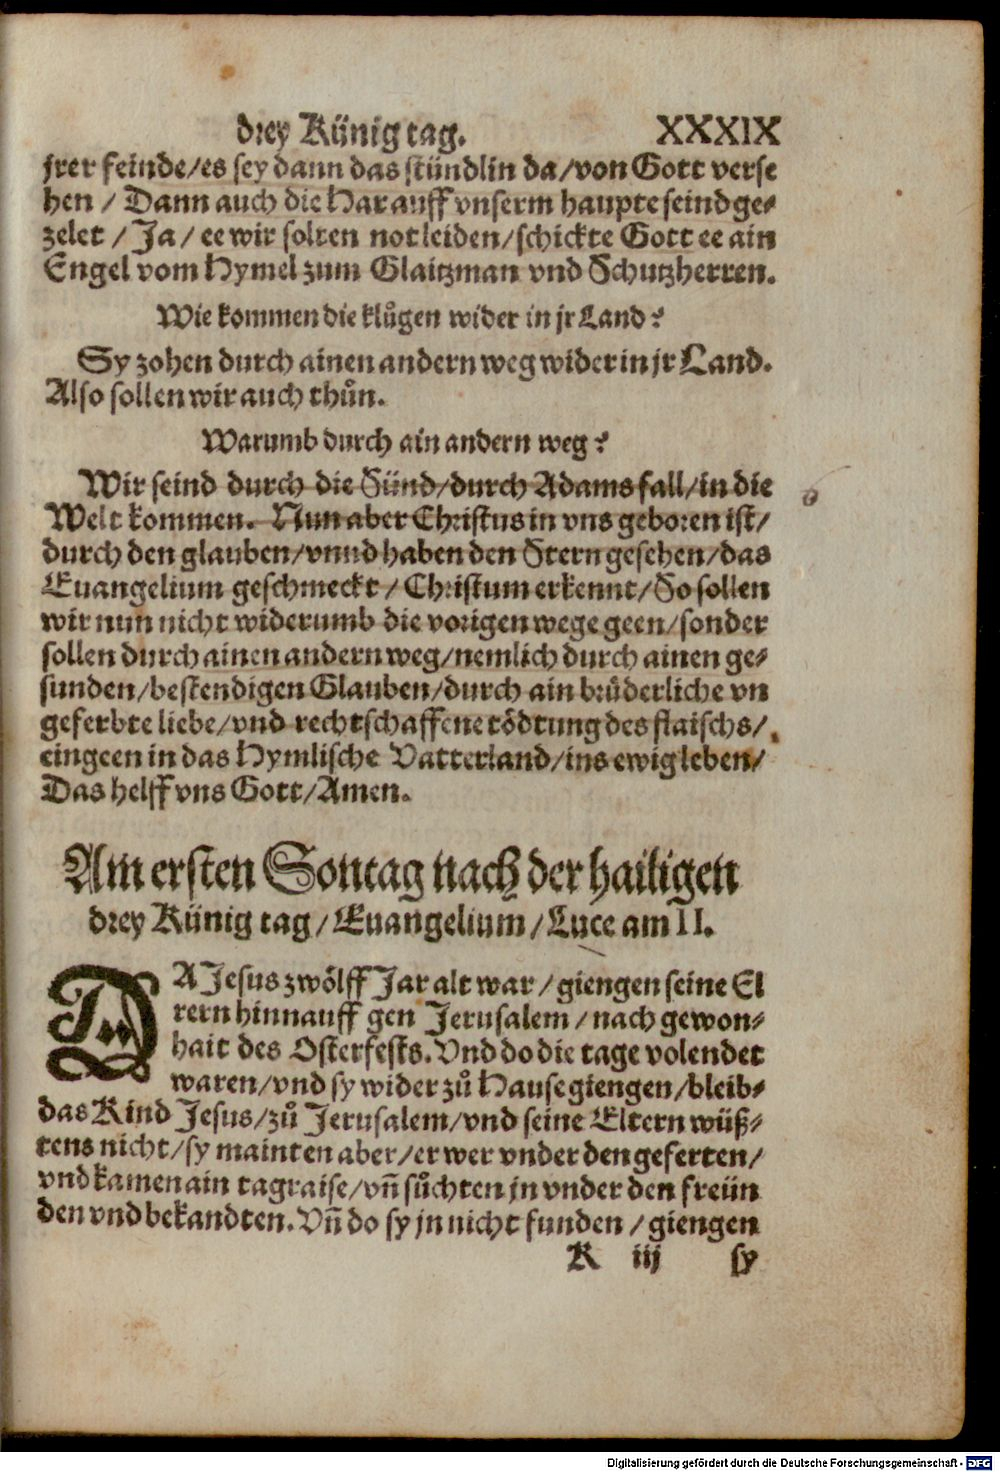 drey Künig tag. XXXIX
jrer feinde/es sey dann das stündlin da/von Gott verse
hen / Dann auch die Har auff vnserm haupte seind ge-
zelet / Ja / ee wir solten not leiden/schickte Gott ee ain
Engel vom Hymel zum Glaitzman vnd Schutzherren.
Wie kommen die klůgen wider in jr Land?
Sy zohen durch ainen andern weg wider in jr Land.
Also sollen wir auch thůn.
Warumb durch ain andern weg?
Wir seind durch die Sünd/durch Adams fall/in die
Welt kommen. Nun aber Christus in vns geboren ist/
durch den glauben/vnnd haben den Stern gesehen/das
Euangelium geschmeckt/Christum erkennt/So sollen
wir nun nicht widerumb die vorigen wege geen/sonder
sollen durch ainen andern weg/nemlich durch ainen ge-
sunden/bestendigen Glauben/durch ain brůderliche vn
geferbte liebe/vnd rechtschaffene tödtung des flaischs/
eingeen in das Hymlische Vatterland/ins ewig leben/
Das helff vns Gott/Amen.
Am ersten Sontag nach der hailigen
drey Künig tag/Euangelium/Luce am II.
DA Jesus zwölff Jar alt war/giengen seine El
tern hinnauff gen Jerusalem/nach gewon-
hait des Osterfests. Vnd do die tage volendet
waren/vnd sy wider zů Hause giengen/bleib-
das Kind Jesus/zů Jerusalem/vnd seine Eltern wüß-
tens nicht/sy mainten aber/er wer vnder den geferten/
vnd kamen ain tagraise/vñ sůchten jn vnder den freün
den vnd bekandten. Vñ do sy jn nicht funden/giengen
K iij sy
Digitalisierung gefördert durch die Deutsche Forschungsgemeinschaft - DFG